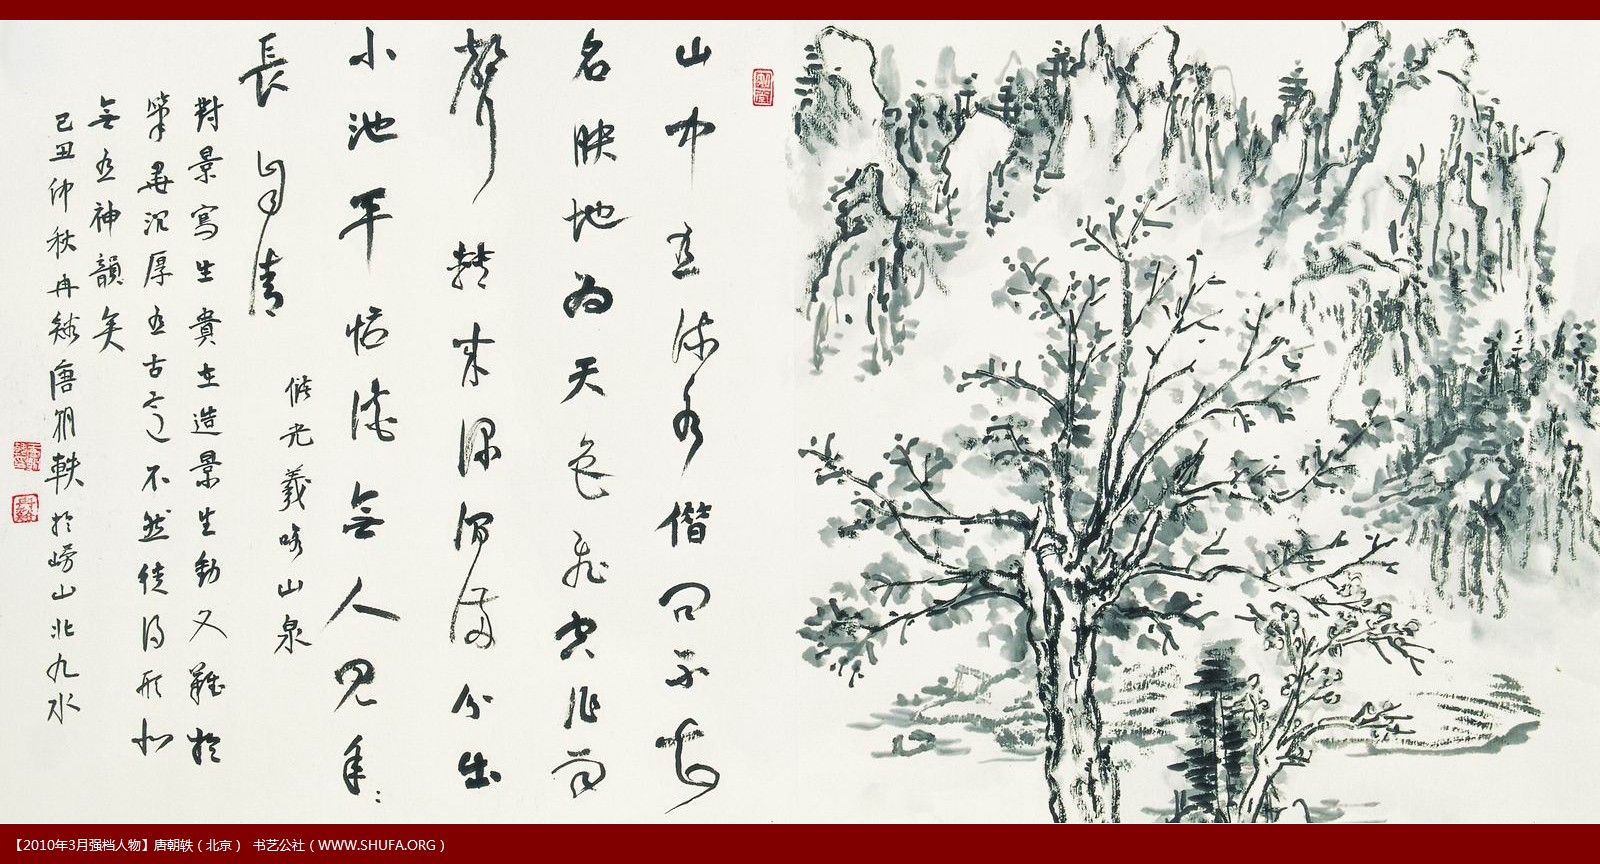 山中有流水借問不知
名映地為天色飛空作雨
聲轉來深澗滿分出
小池平恬澹無人見年:
長自清
儲光羲咏山泉
對景寫生貴在造景生動又難於
筆墨沉厚有古意不然徒得形似
無有神韻矣
己丑仲秋冉 唐朝軼於嶗山北九水
【2010年3月强档人物】唐朝轶（北京） 书艺公社（WWW.SHUFA.ORG）